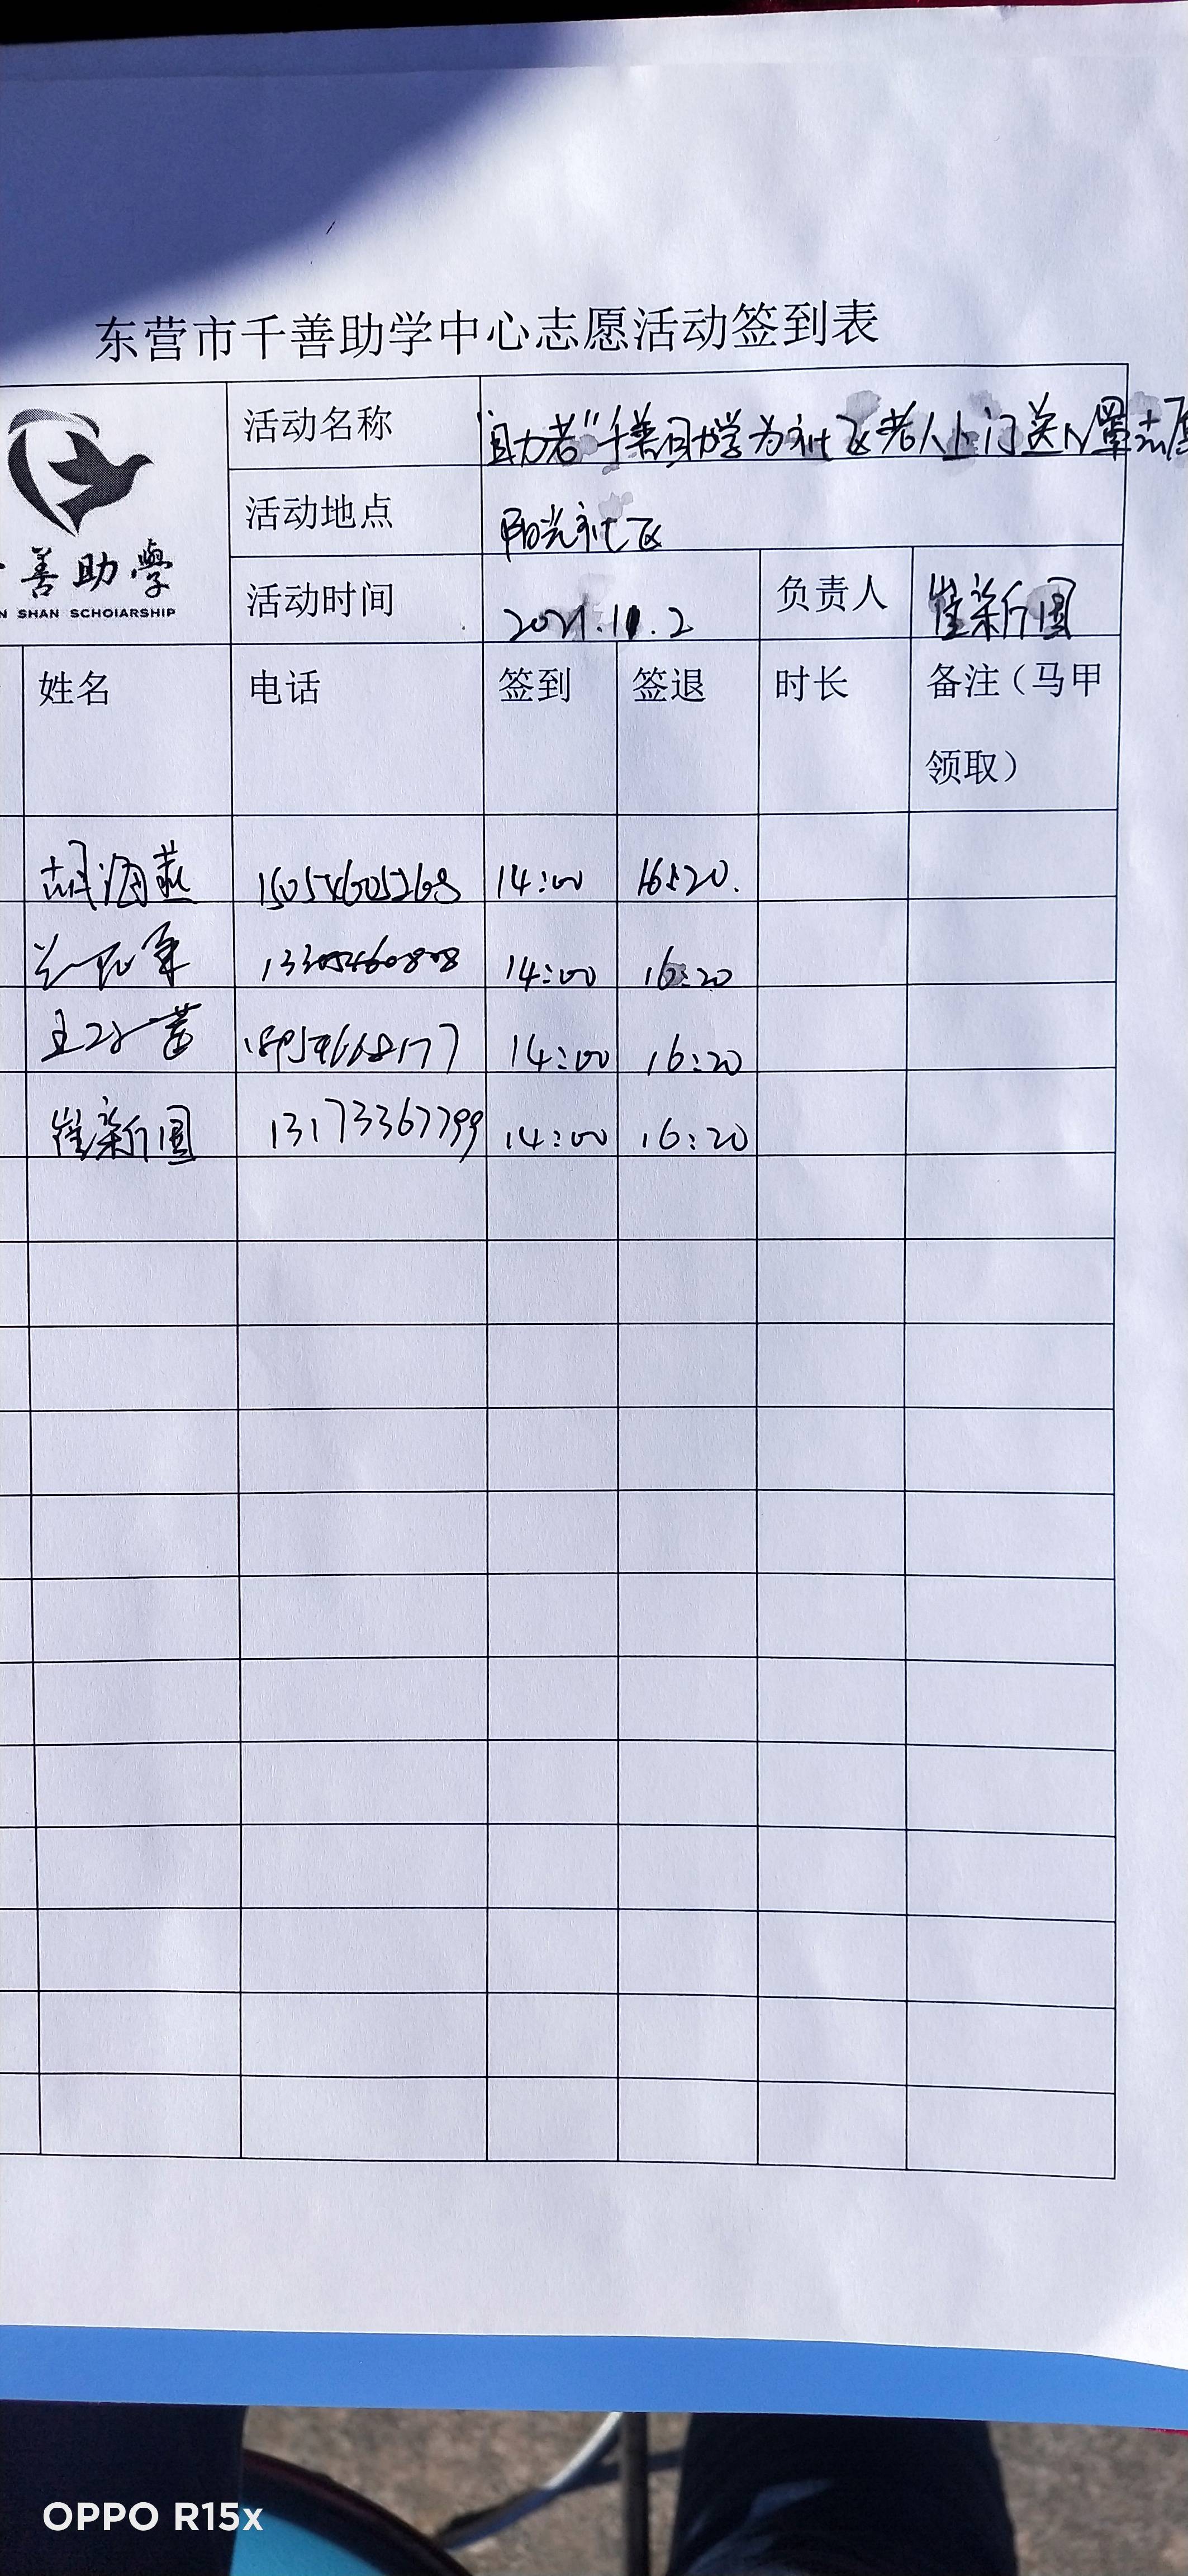 东营市千善助学中心志愿活动签到表
活动名称 "自力者"千善助学为社区老人上门送口罩志愿
活动地点 阳光社区
善助學
N SHAN SCHOIARSHIP
活动时间 2021.11.2 负责人 崔新国
姓名 电话 签到 签退 时长 备注（马甲
领取）
胡海燕 15054605268 14:00 16:20.
兰 军 13305460808 14:00 16:20
王 14:00 16:20
崔新国 13173367799 14:00 16:20
OPPO R15x